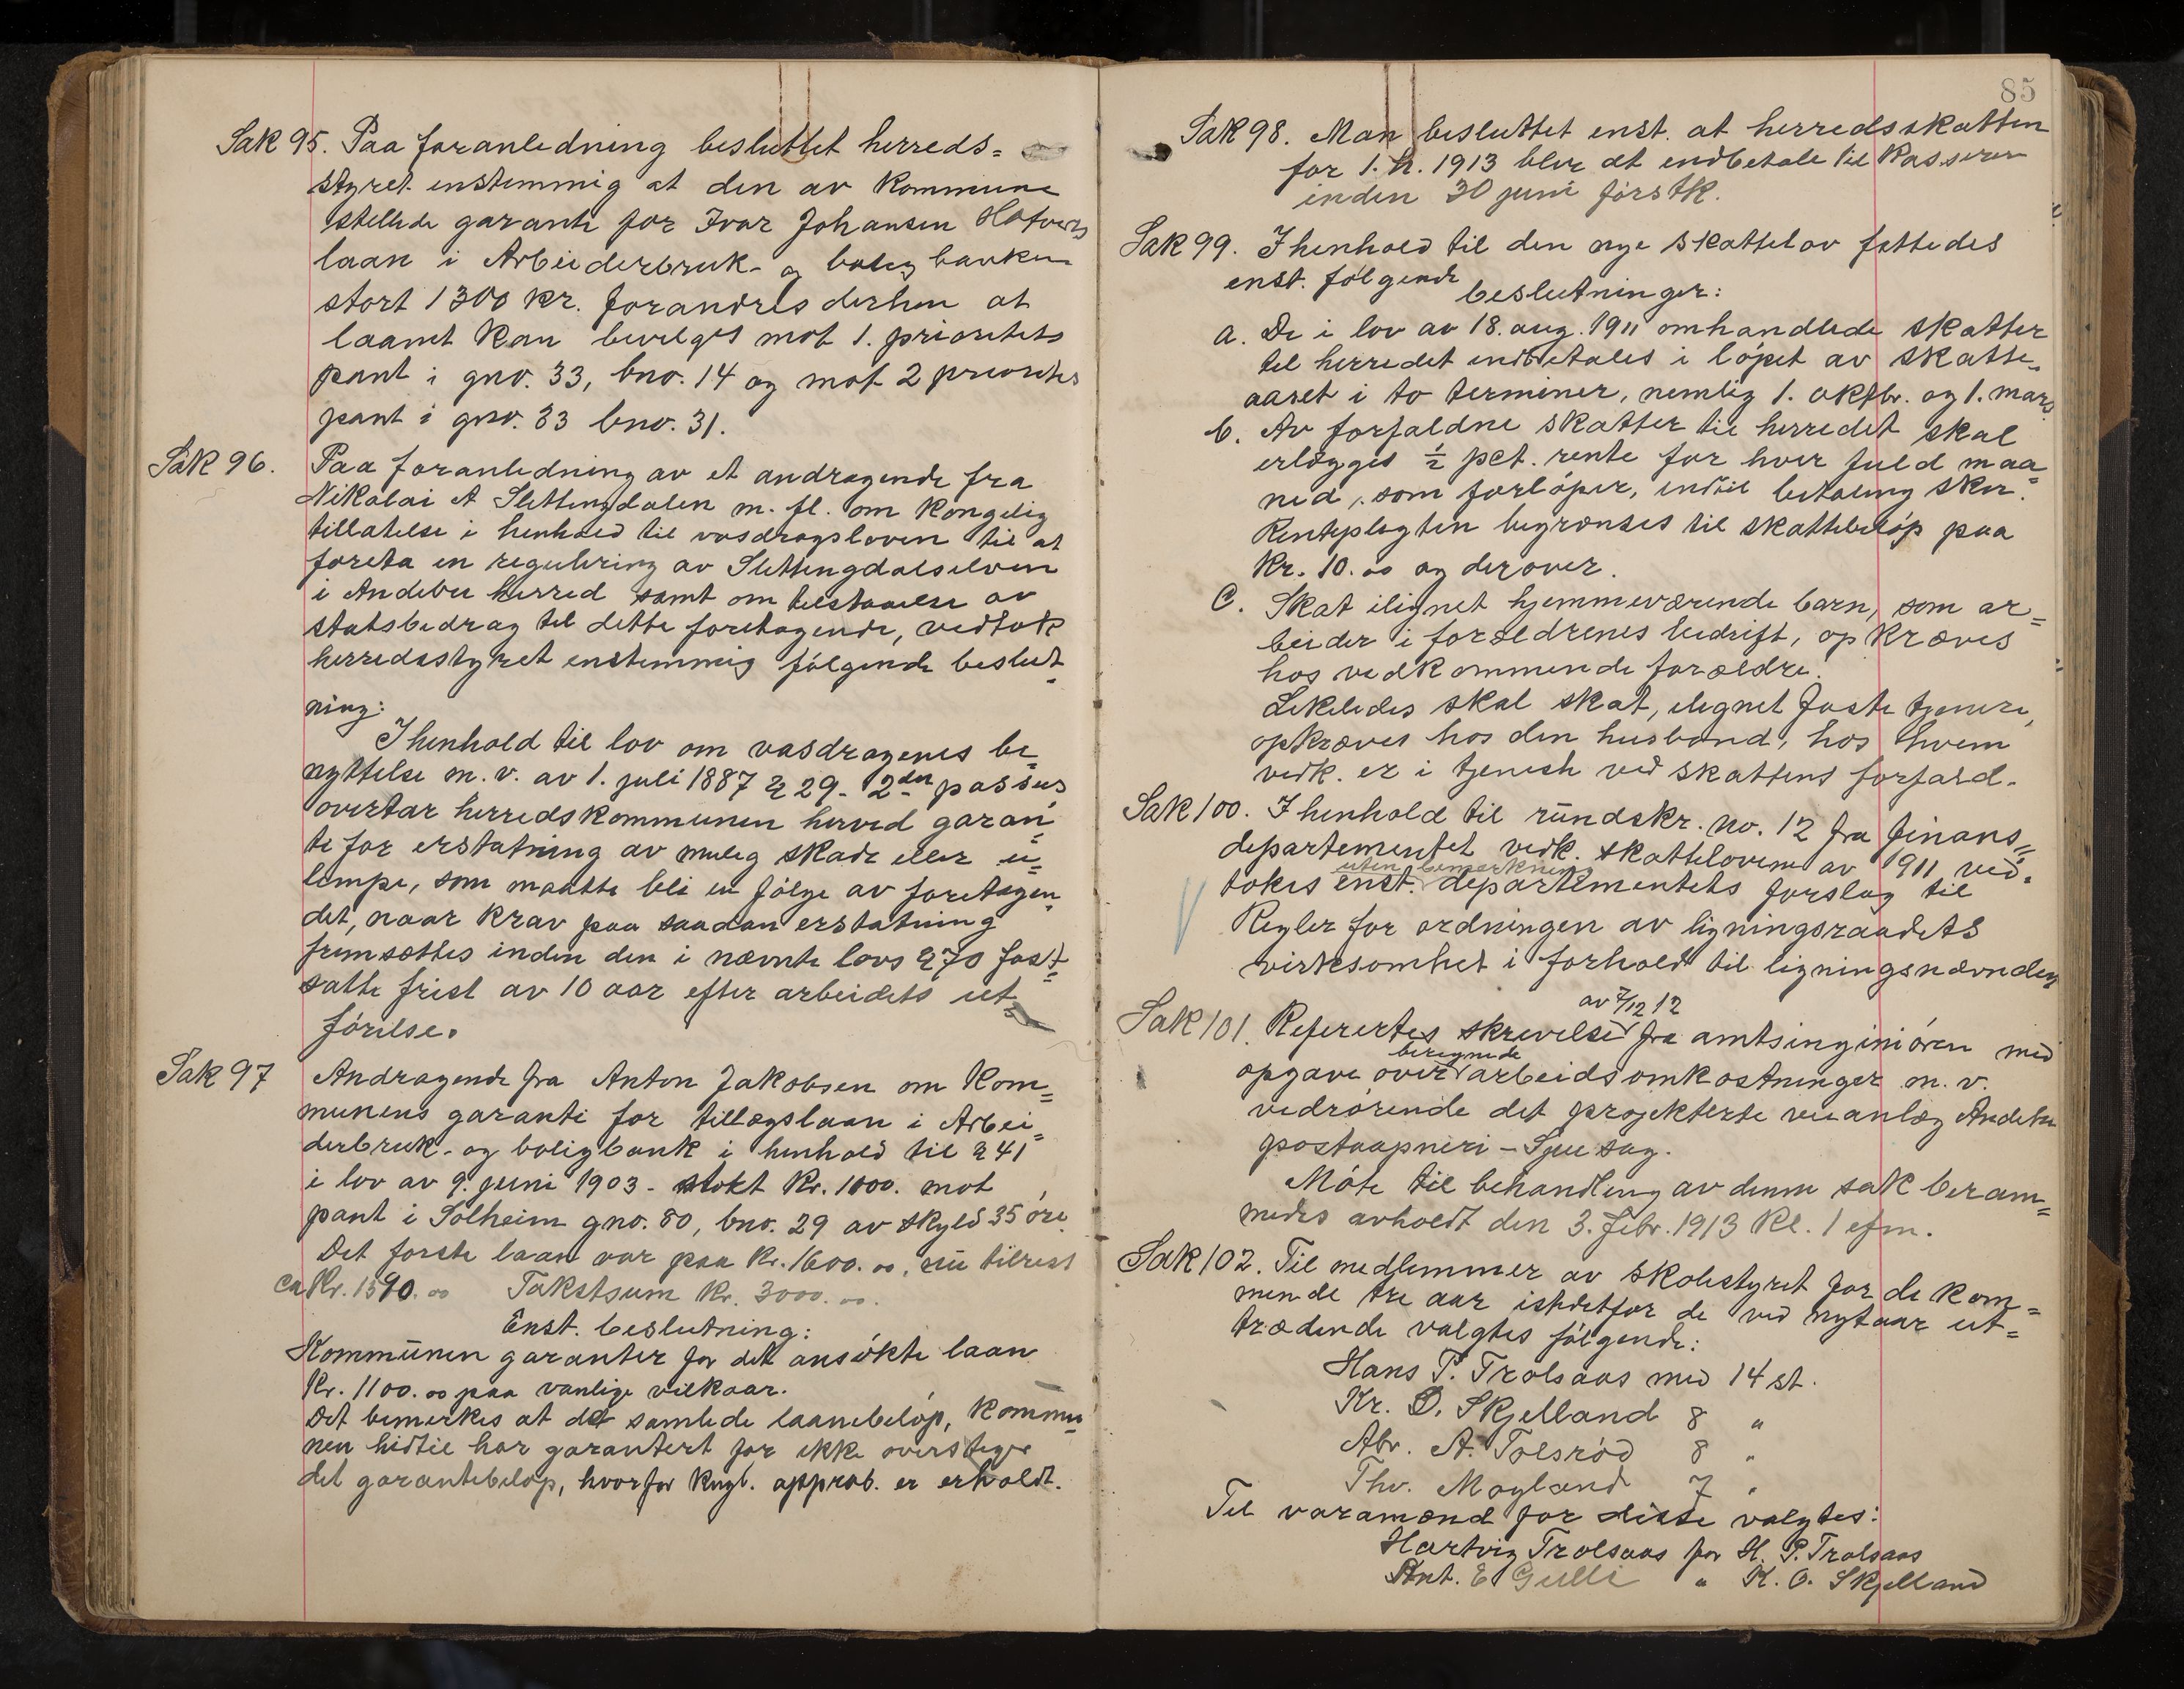 Sak 95. Paa foranledning besluttet herreds=
styret enstemmig at den av Kommune
stellede garanti for Ivar Johansen
laan i Arbeiderbruk- og bolig banken
stort 1300 kr. forandres derhen at
laanet kan bevilges mot 1. prioritets
pant i gno. 33, bno. 14 og mot 2 prioritets
pant i gno. 33 bno. 31.
Sak 96. Paa foranledning av et andragende fra
Nikolai A Slettingdalen m. fl. om Kongelig
tillatelse i henhold til vasdragsloven til at
foreta en regulering av Slettingdalselven
i Andebu herred samt om tilstaaelse av
statsbedrag til dette foretagende, vedtok
herredsstyret enstemmig følgende beslut=
ning:
I henhold til lov om vasdragenes be=
nyttelse m. v. av 1. juli 1887 § 29 - 2den passus
overtar herredskommunen herved garan=
ti for erstatning av mulig skade eller u=
lempe, som maatte bli en følge av foretagen=
det, naar krav paa saadan erstatning
fremsættes inden den i nævnte lovs § 70 fast=
satte frist av 10 aar efter arbeidets ut=
førelse.
Sak 97 Andragende fra Anton Jakobsen om Kom=
munens garanti for tillægslaan i Arbei=
derbruk- og boligbank i henhold til § 41
i lov av 9. juni 1903 - stort Kr. 1100. mot
pant i Solheim gno. 80, bno. 29 av skyld 35 øre.
Det første laan var paa Kr. 1600.00, nu tilrest
ca Kr. 1590.00 Takstsum Kr. 3000.00.
Enst. beslutning:
Kommunen garanter for det ansøkte laan
Kr. 1100.00 paa vanlige vilkaar.
Det bemerkes at det samlede laanebeløp, Kommu=
nen hidtil har garantert for ikke overstiger
det garantibeløp, hvorfor kngl. approb. er erholdt.
85
Sak 98. Man besluttet enst. at herredsskatten
for 1. h. 1913 blir at indbetale til Kasserer
inden 30 juni førstk.
Sak 99. I henhold til den nye skattelov fattedes
enst. følgende
beslutninger:
a. De i lov av 18. aug. 1911 omhandlede skatter
til herredet indbetales i løpet av skatte=
aaret i to terminer, nemlig 1. oktbr. og 1. mars
b. Av forfaldne skatter til herredet skal
erlægges ½ pct. rente for hver fuld maa=
ned, som forløper, indtil betaling sker.
Renteplegten begrænses til skattebeløp paa
Kr. 10.00 og derover.
C. Skat ilignet hjemmeværende barn, som ar=
beider i forældrenes bedrift, opkræves
hos vedkommende forældre.
Likeledes skal skat, ilignet faste tjenere,
opkræves hos den husbond, hos hvem
vedk. er i tjeneste ved skattens forfald.
Sak 100. I henhold til rundskr. no. 12 fra finans=
departementet vedk. skattelovene av 1911 ved=
uten bemerkning
tokes enst. departementets forslag til
Regler for ordningen av ligningsraadets
virksomhet i forhold til ligningsnævnden
av 7/12 12
Sak 101. Refertes skrivelse fra amtsingeniøren med
beregnede
opgave over arbeidsomkostninger m. v.
vedrørende det projekterte veianlæg Andebu
postaapneri - Sjuesag.
Møte til behandling av denne sak beram=
medes avholdt den 3. febr. 1913 Kl. 1 efm.
Sak 102. Til medlemmer av skolestyret for de kom=
mende tre aar istedetfor de ved nytaar ut=
trædende valgtes følgende:
Hans P. Trolsaas med 14 st.
Kr. O. Skjelland 8 "
Abr. A. Tolsrød 8 "
Thv. Møyland 7 "
Til varamænd for disse valgtes:
Hartvig Trolsaas for H. P. Trolsaas
Ant. E Gulli " K. O. Skjelland